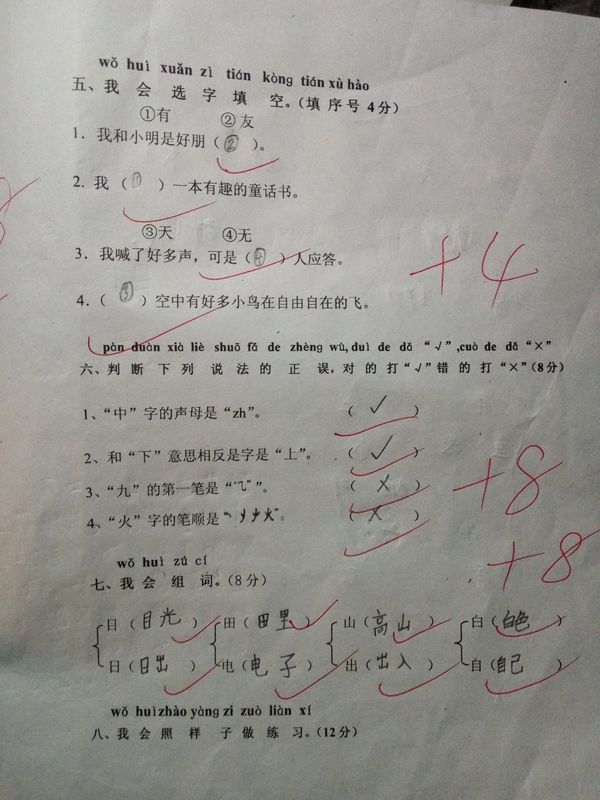 wǒ huì xuǎn zì tián kòng tián xù hào
五、我 会 选 字 填 空。(填 序 号 4分)
①有 ②友
1. 我和小明是好朋（②）。
2. 我（①）一本有趣的童话书。
③天 ④无
3. 我喊了好多声，可是（④）人应答。
+4
4.（③）空中有好多小鸟在自由自在的飞。
pàn duàn xià liè shuō fǎ de zhèng wù, duì de dǎ “√”,cuò de dǎ “×”
六、判 断 下 列 说 法 的 正 误，对 的 打“√”错 的 打“×”(8分)
1、“中”字的声母是“zh”。 （✓）
2、和“下”意思相反是字是“上”。 （✓）
3、“九”的第一笔是“ ”。 （×）
+8
4、“火”字的笔顺是“ 火”。 （×）
wǒ huì zǔ cí
+8
七、我 会 组 词。(8分)
目（目光） 田（田里） 山（高山） 白（白色）
日（日出） 电（电子） 出（出入） 自（自己）
wǒ huì zhào yàng zi zuò liàn xí
八、我 会 照 样 子 做 练 习。(12分)